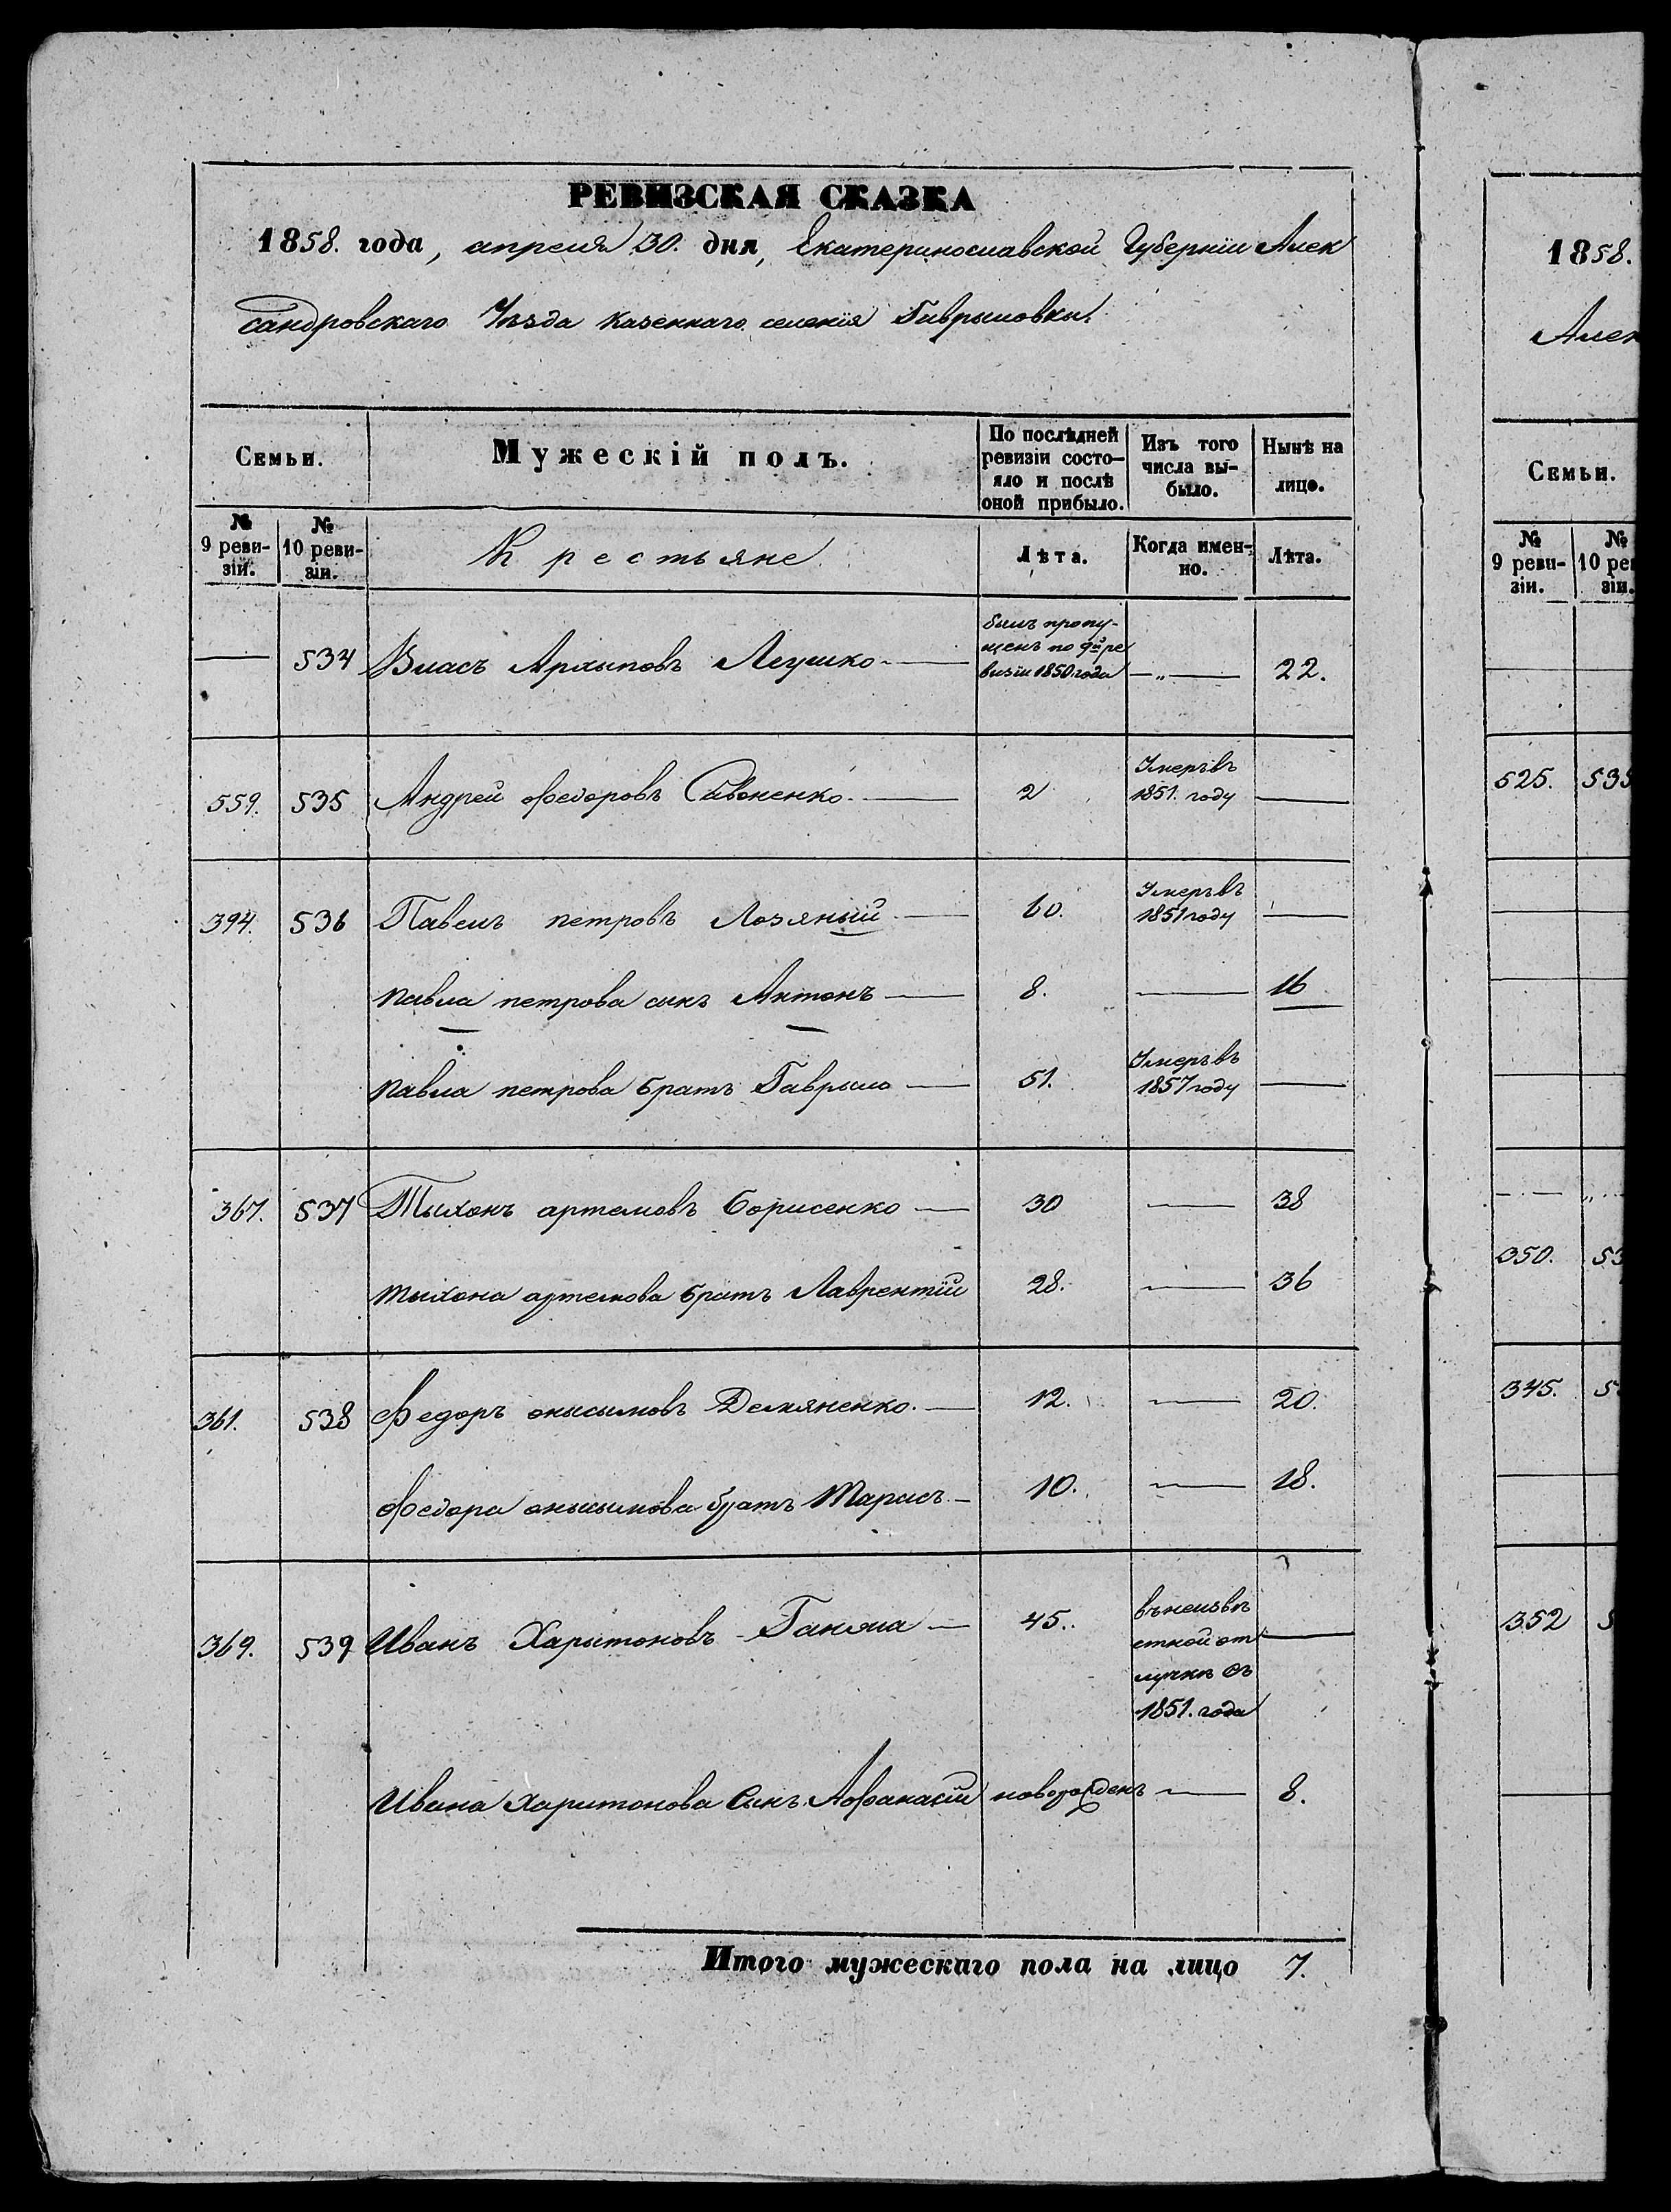 РЕВИЗСКАЯ СКАЗКА
1858. года, апреля 30. дня, Екатеринославской Губернїи Алек
сандровскаго Уѣзда казеннаго селенїя Гаврыловки.
Семьи. Мужескій полъ. По послѣдней ревизіи состо- яло и послѣ оной прибыло. Изъ того числа вы- было. Нынѣ на лицо.
№ 9 реви- зіи. № 10 реви- зіи. Крестьяне Лѣта. Когда имен- но. Лѣта.
— 534 Власъ Архыповъ Леушко — былъ пропу- щенъ по 9й ре визїи 1850 года —„— 22.
559. 535 Андрей Федоровъ Савоненко. — 2 Умеръ въ 1851. году —
394. 536 Павелъ петровъ Лозяный — 60. Умеръ въ 1851 году —
павла петрова сынъ Антонъ — 8. — 16
павла петрова братъ Гаврыло — 51. Умеръ въ 1857 году —
367. 537 Тыхонъ артемовъ Борисенко — 30 — 38
тыхона артемова братъ Лаврентїй 28. — 36
361. 538 Федоръ онысымовъ Демяненко. — 12. — 20.
Федора онысымова братъ Тарасъ. — 10. — 18.
369. 539 Иванъ Харытоновъ Ганжа — 45. въ неизвѣ стной от лучкѣ съ 1851. года —
Ивана Харитонова Сынъ Афанасїй новорожденъ — 8.
Итого мужескаго пола на лицо 7.
1858.
Алек
Семьи.
№ 9 реви- зіи. № 10 рев зіи.
525. 535
— „
350. 53
345. 5
352 5